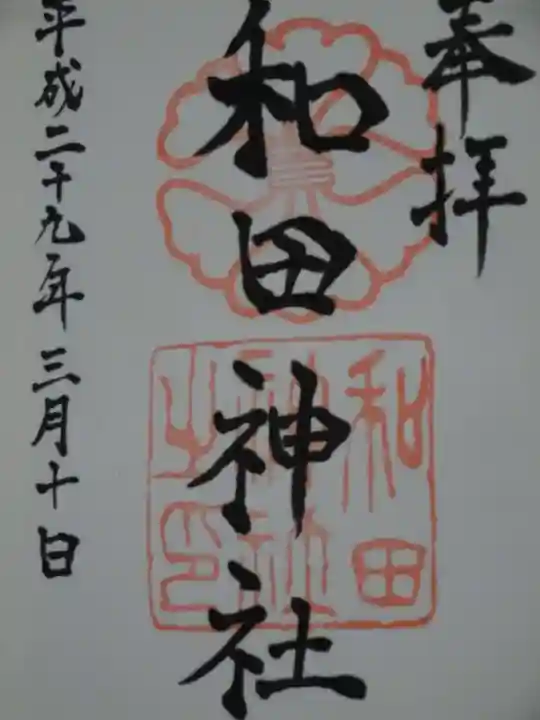 奉拝
和田神社
和田
神社
之印
平成二十九年三月十日